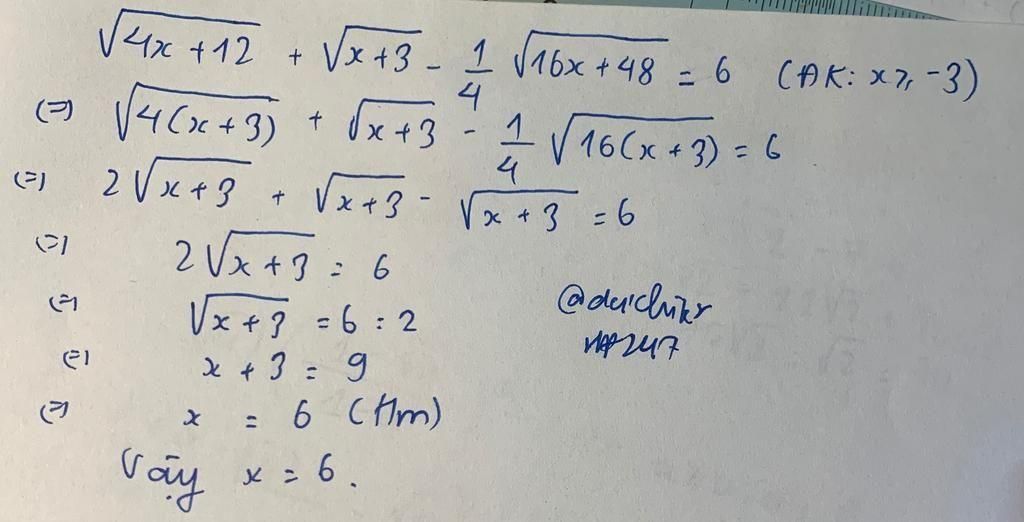 √4x+12 + √x+3 - 1/4 √16x+48 = 6 (ĐK: x ≥ -3)
(=) √4(x+3) + √x+3 - 1/4 √16(x+3) = 6
(=) 2√x+3 + √x+3 - √x+3 = 6
(=) 2√x+3 = 6
(=) √x+3 = 6 : 2
(=) x + 3 = 9
(=) x = 6 (t/m)
Vậy x = 6.
247